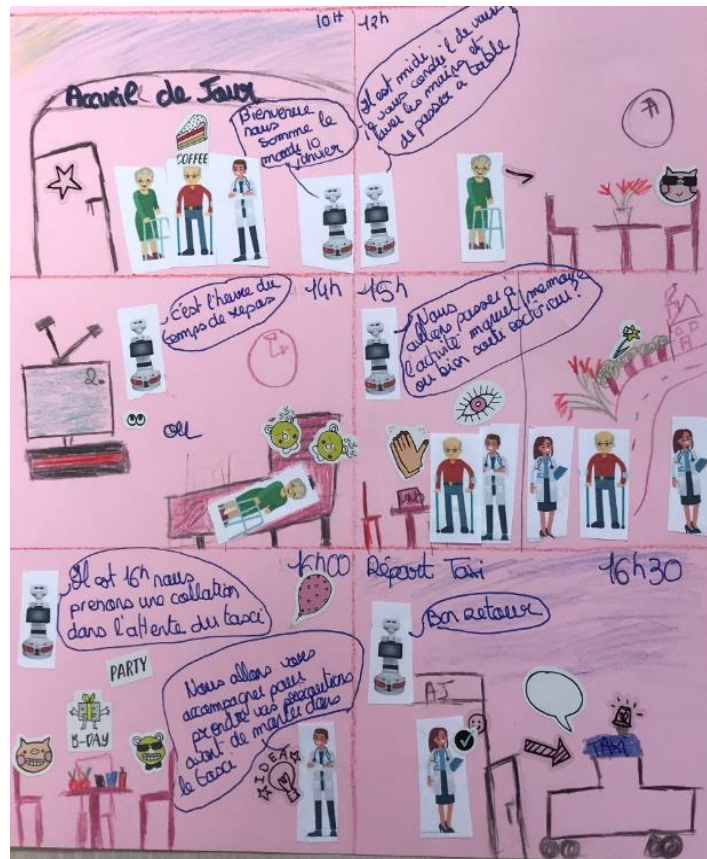 10H
Accueil de Jour
COFFEE
Bienvenue
nous
somme le
mardi 10
janvier
12h
Il est midi il
vous conduit
laver les mains et
de passer à table
14h
c'est l'heure du
temps de repos
2
ou
15h
Nous
allons passer à
l'activité manuel, mémoire
ou bien sortie extérieur?
UNO
16h00
Il est 16h nous
prenons une collation
dans l'attente du taxi
PARTY
B-DAY
Nous allons vous
accompagner pour
prendre vos précautions
avant de monter dans
le taxi
IDEA
Départ Taxi
16h30
Bon retour
AJ
TAXI